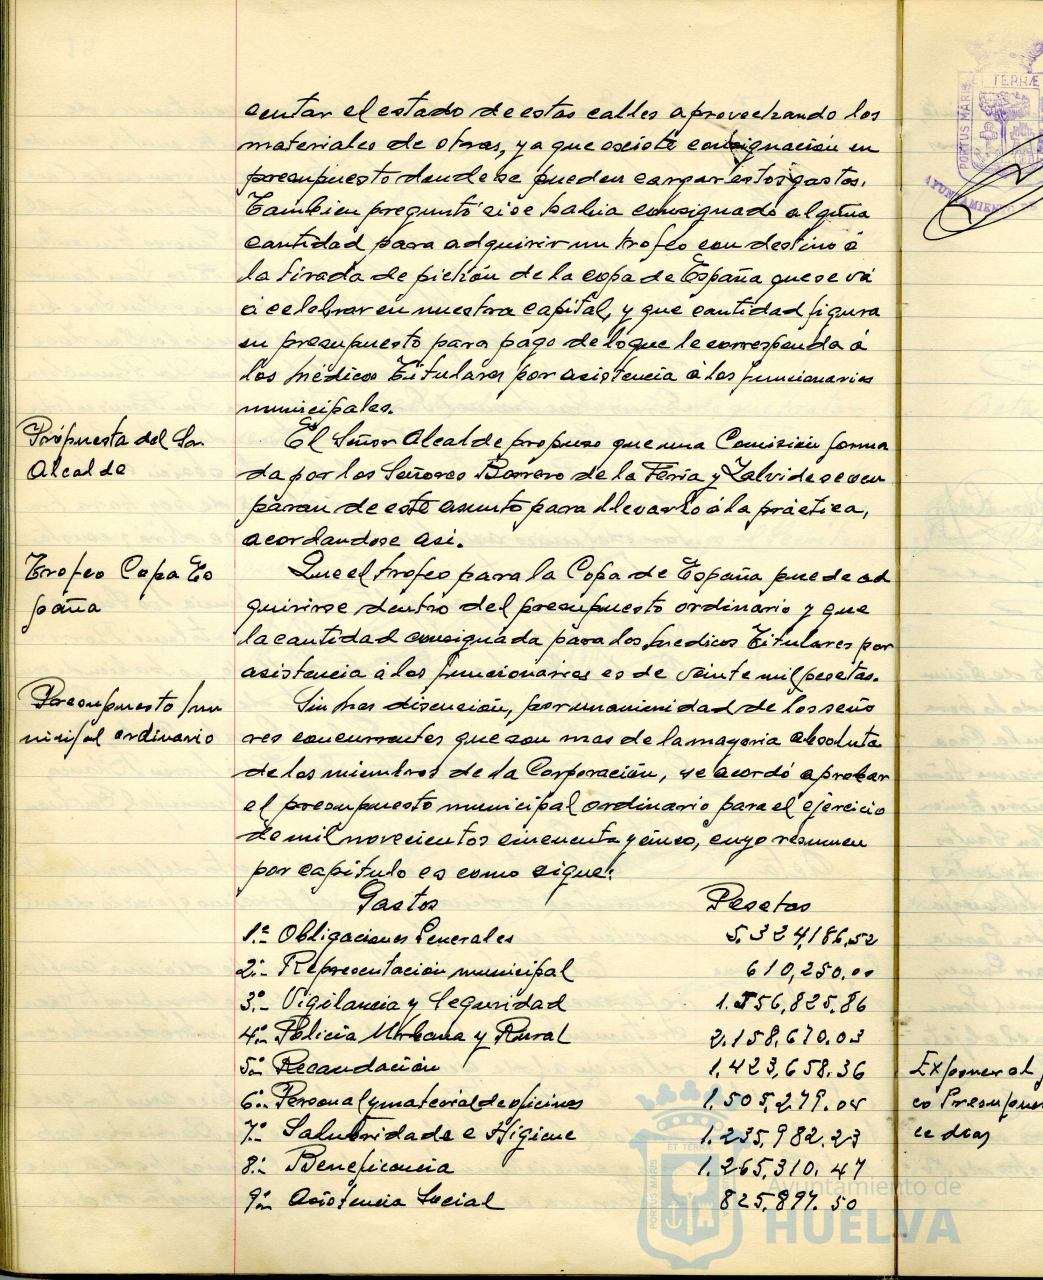 centar el estado de estas calles aprovechando los
materiales de obras, ya que existe consignación en
presupuesto donde se pueden cargar estos gastos.
Tambien preguntó si se habia consignado alguna
cantidad para adquirir un trofeo con destino á
la tirada de pichón de la copa de España que se vá
á celebrar en nuestra capital, y que cantidad figura
en presupuesto para pago de lo que le corresponda á
los Médicos Titulares por asistencia á los funcionarios
municipales.
Própuesta del Sor
Alcalde
El Señor Alcalde propuso que una Comisión forma
da por los Señores Borrero de la Feria y Zalvide se ocu
paran de este asunto para llevarlo á la práctica,
acordandose asi.
Trofeo Copa Es
paña
Que el trofeo para la Copa de España puede ad
quirirse dentro del presupuesto ordinario y que
la cantidad consignada para los Medicos Titulares por
asistencia á los funcionarios es de veinte mil pesetas.
Presupuesto mu
nicipal ordinario
Sin mas discusión, por unanimidad de los seño
res concurrentes que son mas de la mayoria absoluta
de los miembros de la Corporación, se acordó aprobar
el presupuesto municipal ordinario para el ejercicio
de mil novecientos cincuenta y cinco, cuyo resumen
por capitulo es como sigue:
Gastos Pesetas
1º.- Obligaciones Generales 5.324,186,52
2º.- Representación municipal 610,250,00
3º.- Vigilancia y Seguridad 1.556,825,86
4º.- Policia Urbana y Rural 2.158,670.03
5º.- Recaudación 1,423,658.36
6º.- Personal y material de oficinas 1.505,279.04
7º.- Salubridad e Higiene 1.235,982.23
8º.- Beneficencia 1.265,310.47
9º.- Asistencia Social 825,897.50
ET TERRÆ
PORTUS MARIS
AYUNTAMIENTO DE
Exponer al p
co Presupues
ce dias
ET TERRA
PORTUS MARIS
Ayuntamiento de
HUELVA